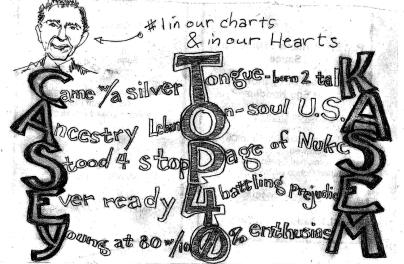 #1 in our charts
& in our Hearts
Came w/a silver Tongue-born 2 talK
Ancestry LebanOn-soul U.S.A
Stood 4 stopPage of NukeS
Ever ready 4 battling prejudicE
Young at 80 w/100% enthusiasM